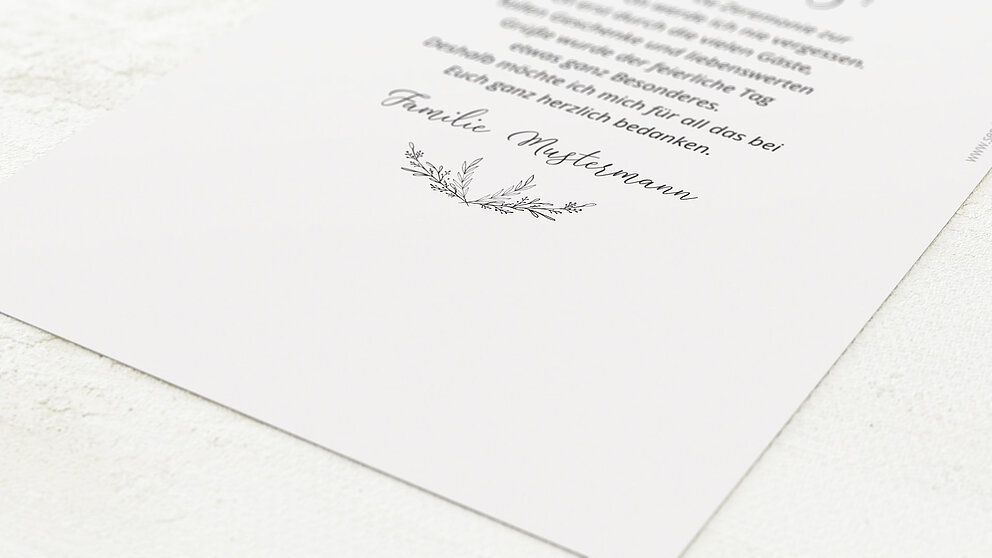 Zeremonie zur
werde ich nie vergessen.
erst durch die vielen Gäste,
vielen Geschenke und liebenswerten
Grüße wurde der feierliche Tag
etwas ganz Besonderes.
Deshalb möchte ich mich für all das bei
Euch ganz herzlich bedanken.
Familie Mustermann
www.se